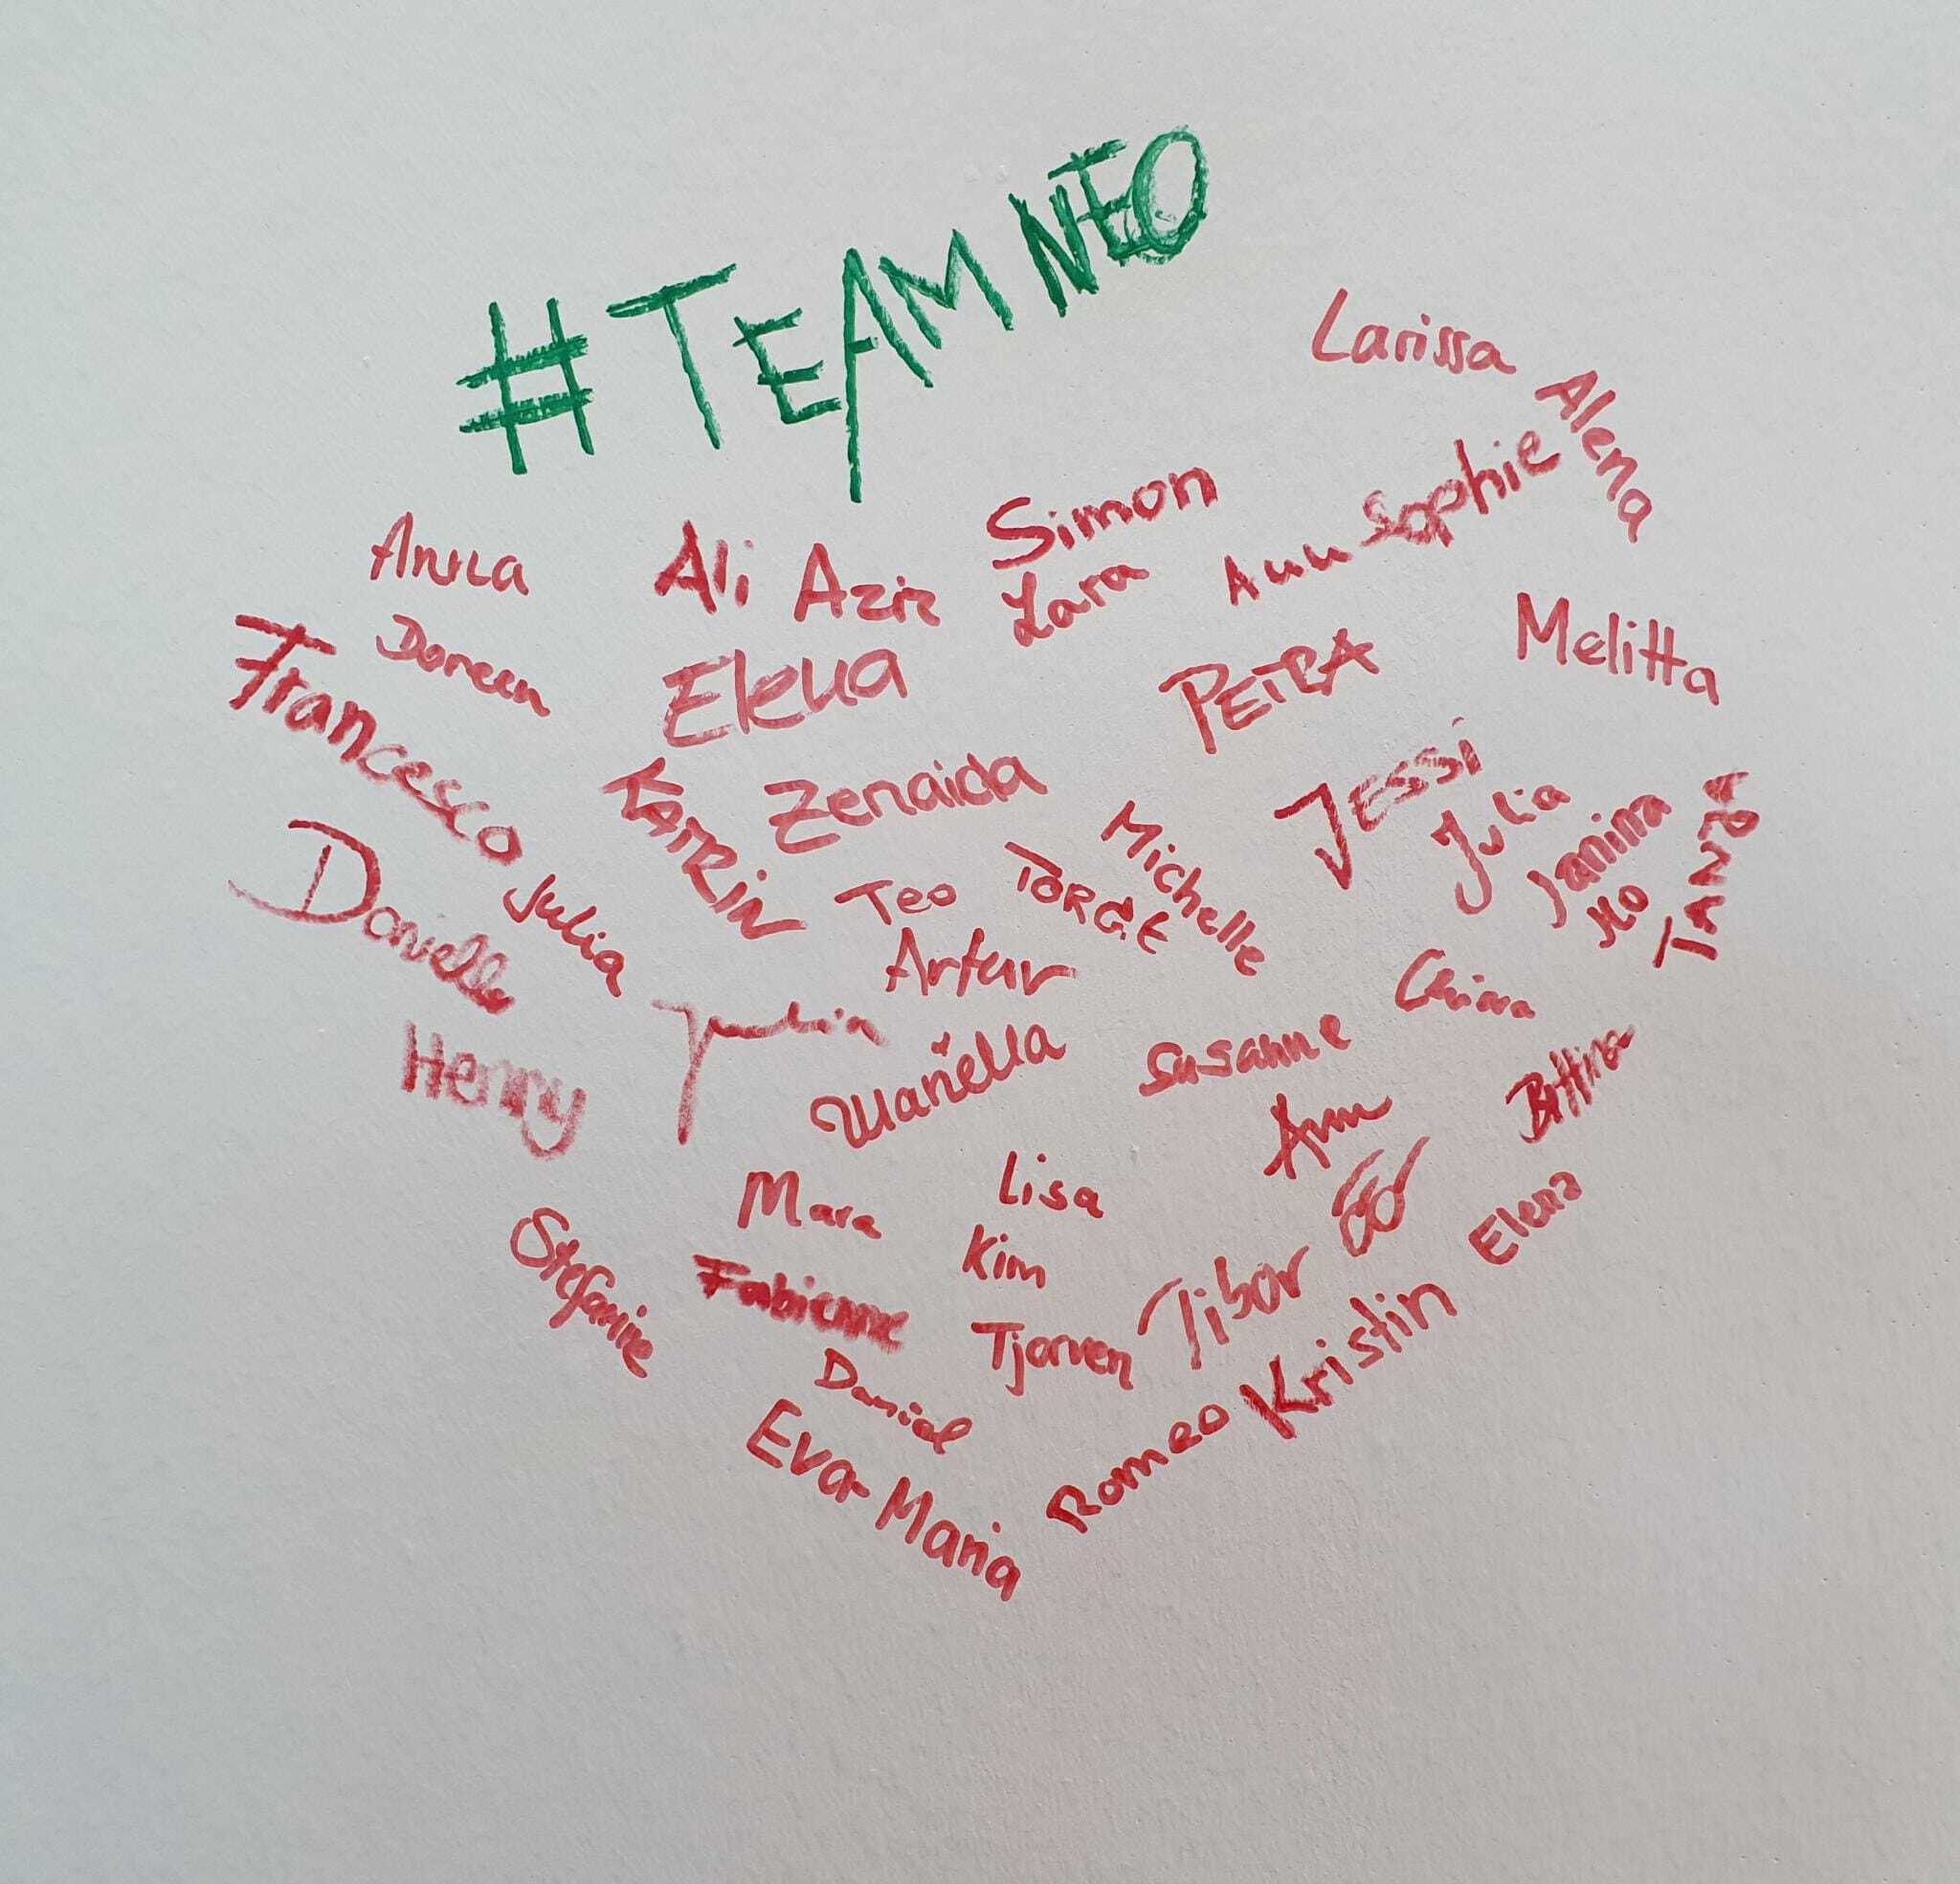 #TEAM NEO
Larissa
Alena
Simon
Ann Sophie
Anna
Ali Aziz
Lara
Doreen
Elena
PETRA
Melitta
Francesco
KATRIN
Zenaida
JESSI
Julia
Janina
TANJA
Michelle
Teo
Danielle
Julia
Artur
Mo
Henry
Julia
Mariella
Susanne
Bettina
Ann
Mara
Lisa
Elena
Stefanie
Fabienne
Kim
Tibor
Tjorven
Kristin
Daniel
Romeo
Eva-Maria